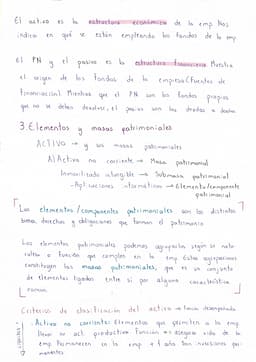 El activo es la estructura económica de la emp. Nos
indica en qué se están empleando los fondos de la emp
El PN y el pasivo es la estructura financiera. Muestra
el origen de los fondos de la empresa (Fuentes de
financiación). Mientras que el PN son los fondos propios
que no se deben devolver, el pasivo son las deudas a
3. Elementos y masas patrimoniales
ACTIVO → y sus masas patrimoniales
A) Activo no corriente → Masa patrimonial
Inmovilizado intangible → Submasa patrimonial
- Aplicaciones informáticas → Elemento/componente
patrimonial
Los elementos / componentes patrimoniales son los distintos
bienes, derechos y obligaciones que forman el patrimonio
Los elementos patrimoniales podemos agruparlos según su natu-
raleza o función que cumplen en la emp. Estas agrupaciones
constituyen las masas patrimoniales, que es un conjunto
de elementos ligados entre sí por alguna característica
común.
Criterios de clasificación del activo → función desempeñada
· Activo no corriente: Elementos que permiten a la emp
llevar su act. productiva. Función → asegurar vida de la
emp. Permanecen en la emp + 1 año. Son inversiones per-
manentes